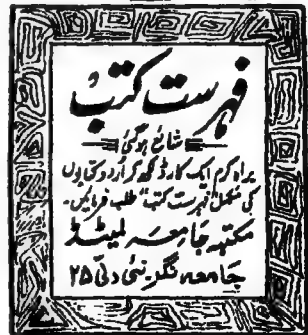 فہرست کتب
شائع ہوگئی
براہ کرم ایک کارڈ لکھ کر اُردو کتابوں
کی مکمل "فہرست کتب" طلب فرمائیں۔
مکتبہ جامعہ لمیٹڈ
جامعہ نگر۔ نئی دلّی ۲۵